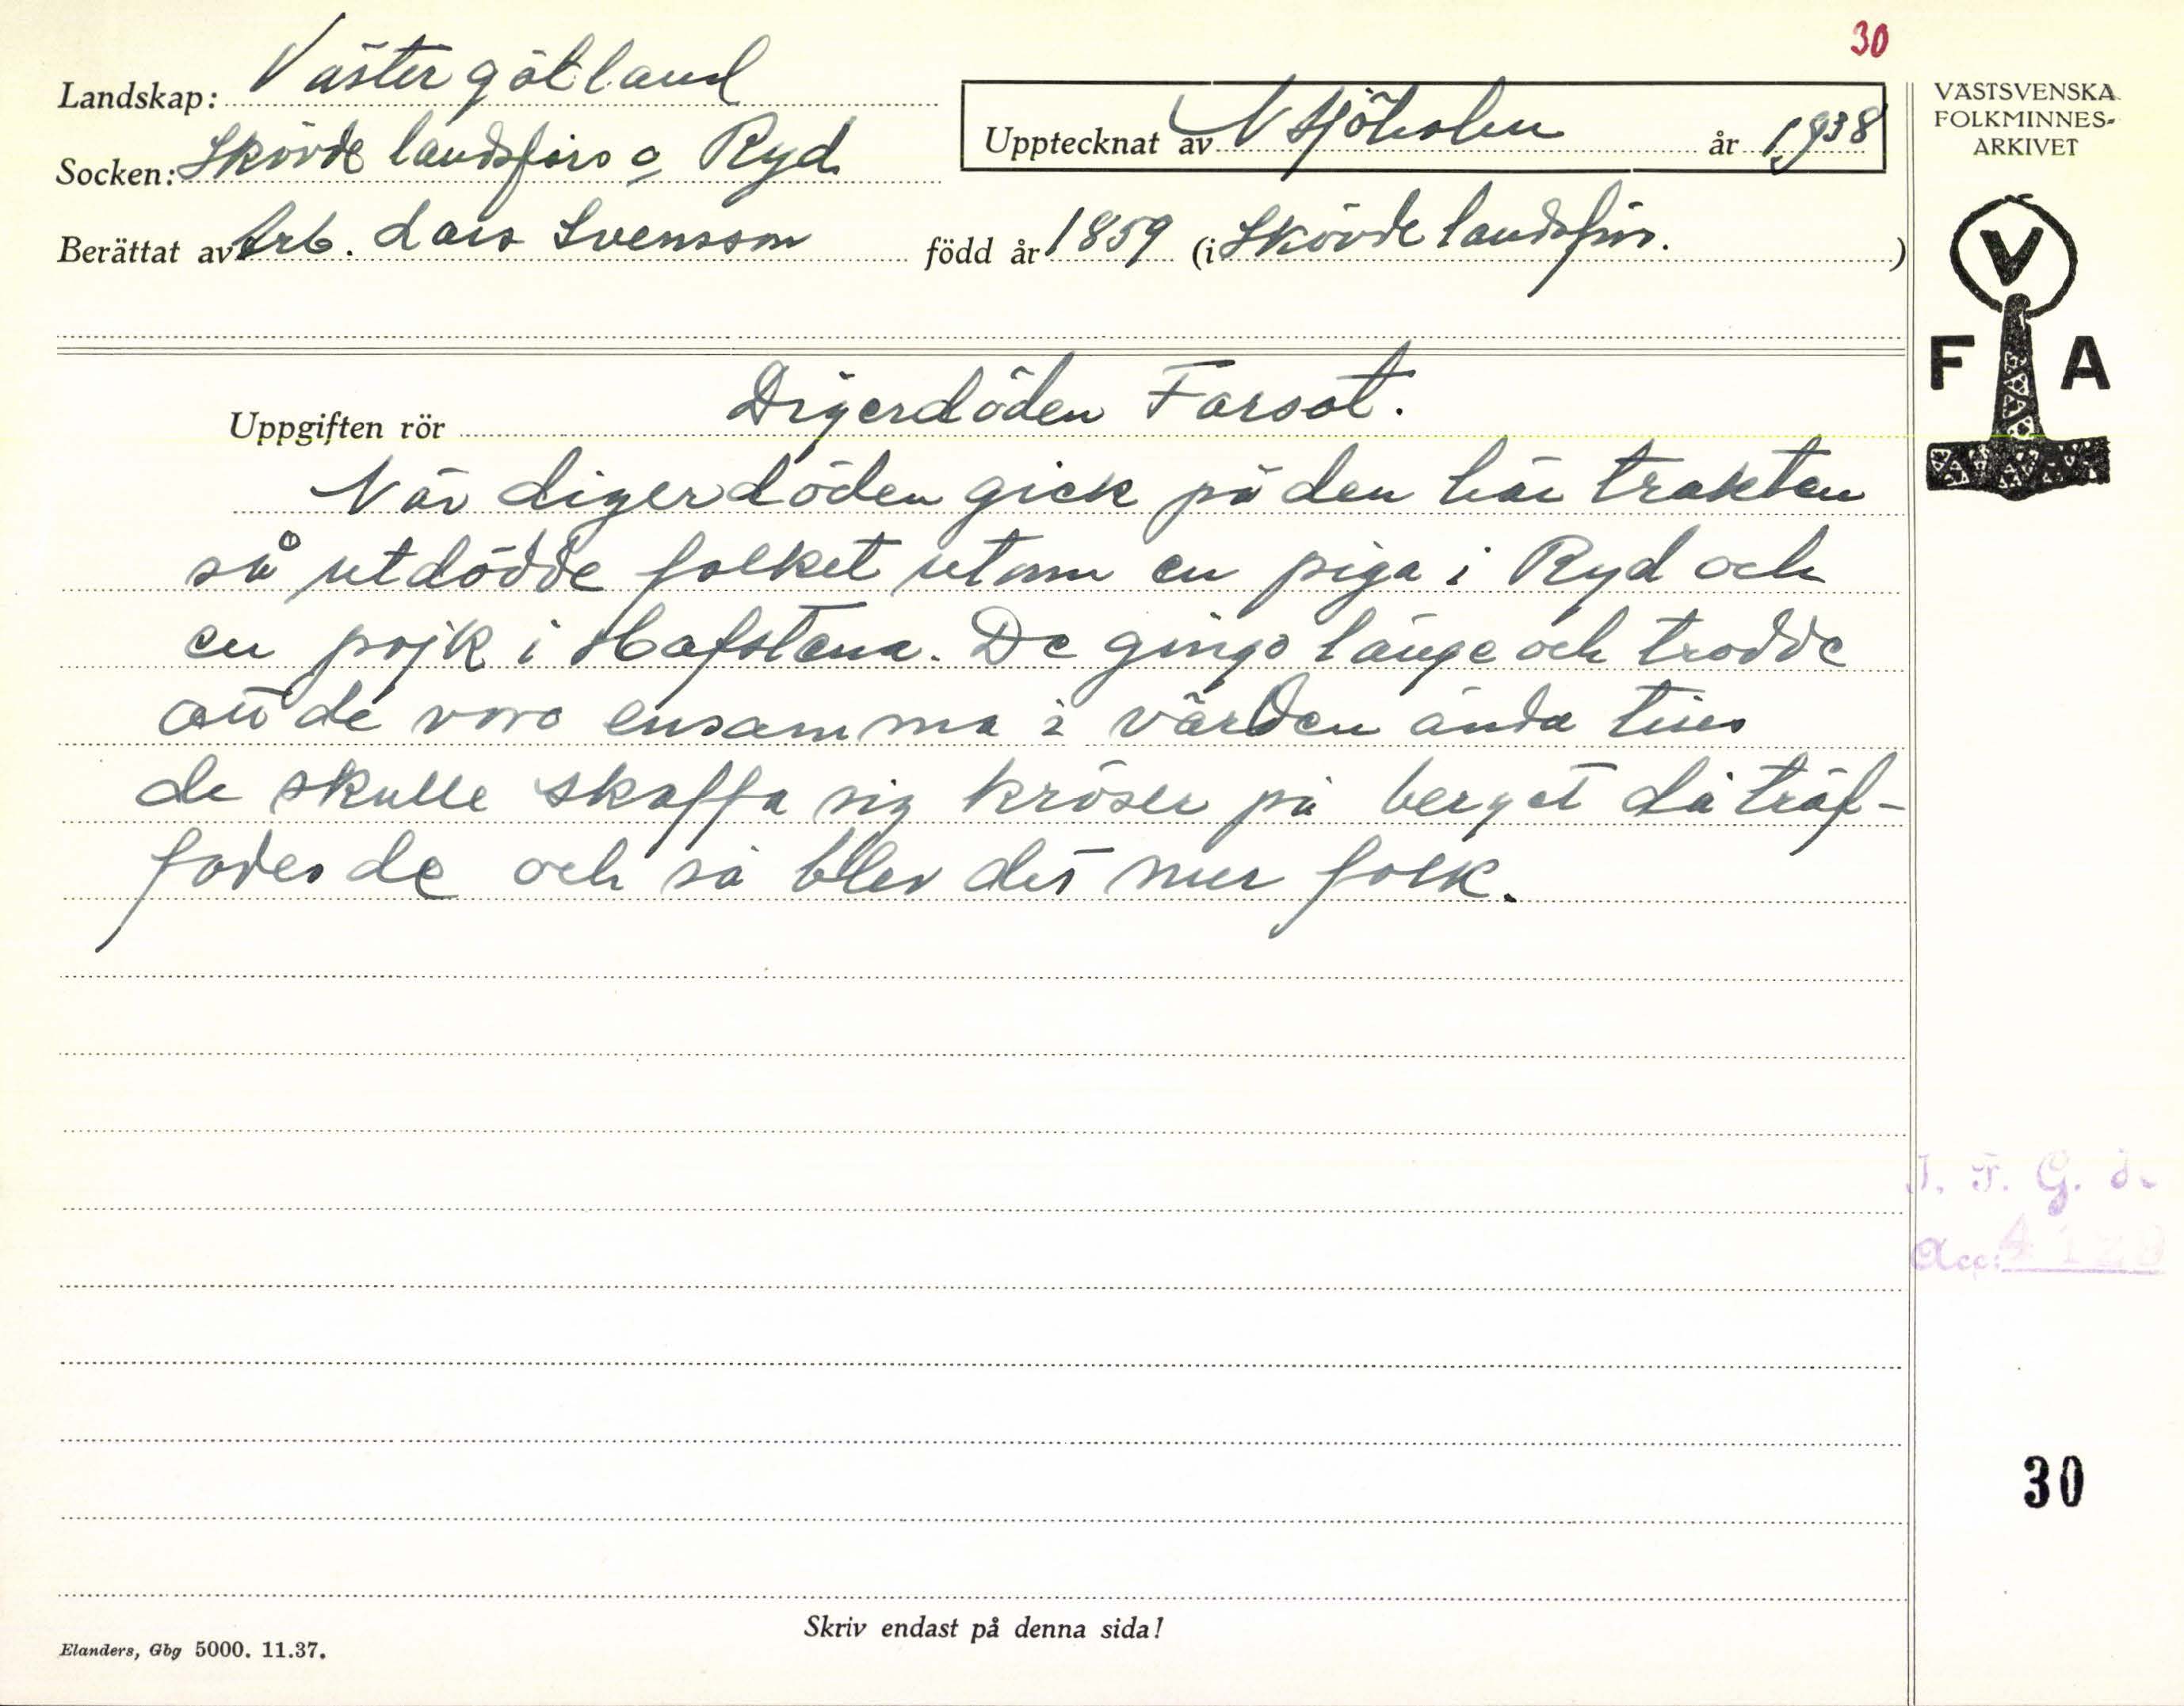 30
Landskap: Västergötland
Socken: Skövde landsförs o Ryd
Upptecknat av N Sjöholm år 1938
Berättat av Arb. Lars Svensson född år 1859 (i Skövde landsför. )
VÄSTSVENSKA
FOLKMINNES-
ARKIVET
V
F A
Uppgiften rör Digerdöden Farsot.
När digerdöden gick på den här trakten
så utdödde folket utom en piga i Ryd och
en pojk i Hafstena. De gingo länge och trodde
att de voro ensamma i värden ända tills
de skulle skaffa sig kröser på berget då träf-
fades de och så blev det mer folk.
I. F. G. d.
Acc: 4
30
Skriv endast på denna sida!
Elanders, Gbg 5000. 11.37.